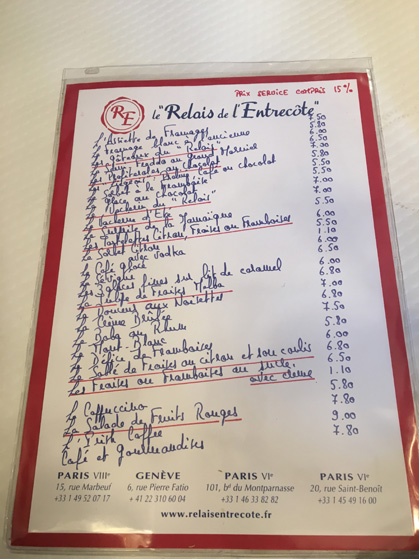 PRIX SERVICE COMPRIS 15%
RE le "Relais de l'Entrecôte"
L'Assiette de Fromages 7.50
Le Fromage blanc à l'ancienne 5.80
Les gâteaux du "Relais" 6.00
6.50
Les Profiteroles au chocolat 7.00
Café ou chocolat 5.80
Le Sorbet à la Framboise 5.50
au Chocolat 5.50
Le Vacherin du "Relais" 7.00
Le Vacherin d'Été 7.00
de la Jamaïque 5.50
Les Tartelettes Citron, Fraises ou Framboises
Le Sorbet Citron 6.00
avec Vodka 5.50
Le Café glacé 1.10
6.00
6.50
fines sur lit de caramel
La Coupe de Fraises Melba 6.00
aux Noisettes 6.80
La Crème Brûlée 7.00
Le Baba au Rhum 6.80
Le Mont Blanc 7.50
Le Délice de Framboises 5.80
de Fraises au citron et son coulis 6.00
Les Fraises ou Framboises au sucre, 6.80
avec crème 6.50
1.10
Le Cappuccino 5.80
La Salade de Fruits Rouges 7.80
L'Irish Coffee 9.00
Café et gourmandises 7.80
PARIS VIIIe GENÈVE PARIS VIe PARIS VIe
15, rue Marbeuf 6, rue Pierre Fatio 101, bd du Montparnasse 20, rue Saint-Benoît
+33 1 49 52 07 17 + 41 22 310 60 04 +33 1 46 33 82 82 +33 1 45 49 16 00
www.relaisentrecote.fr